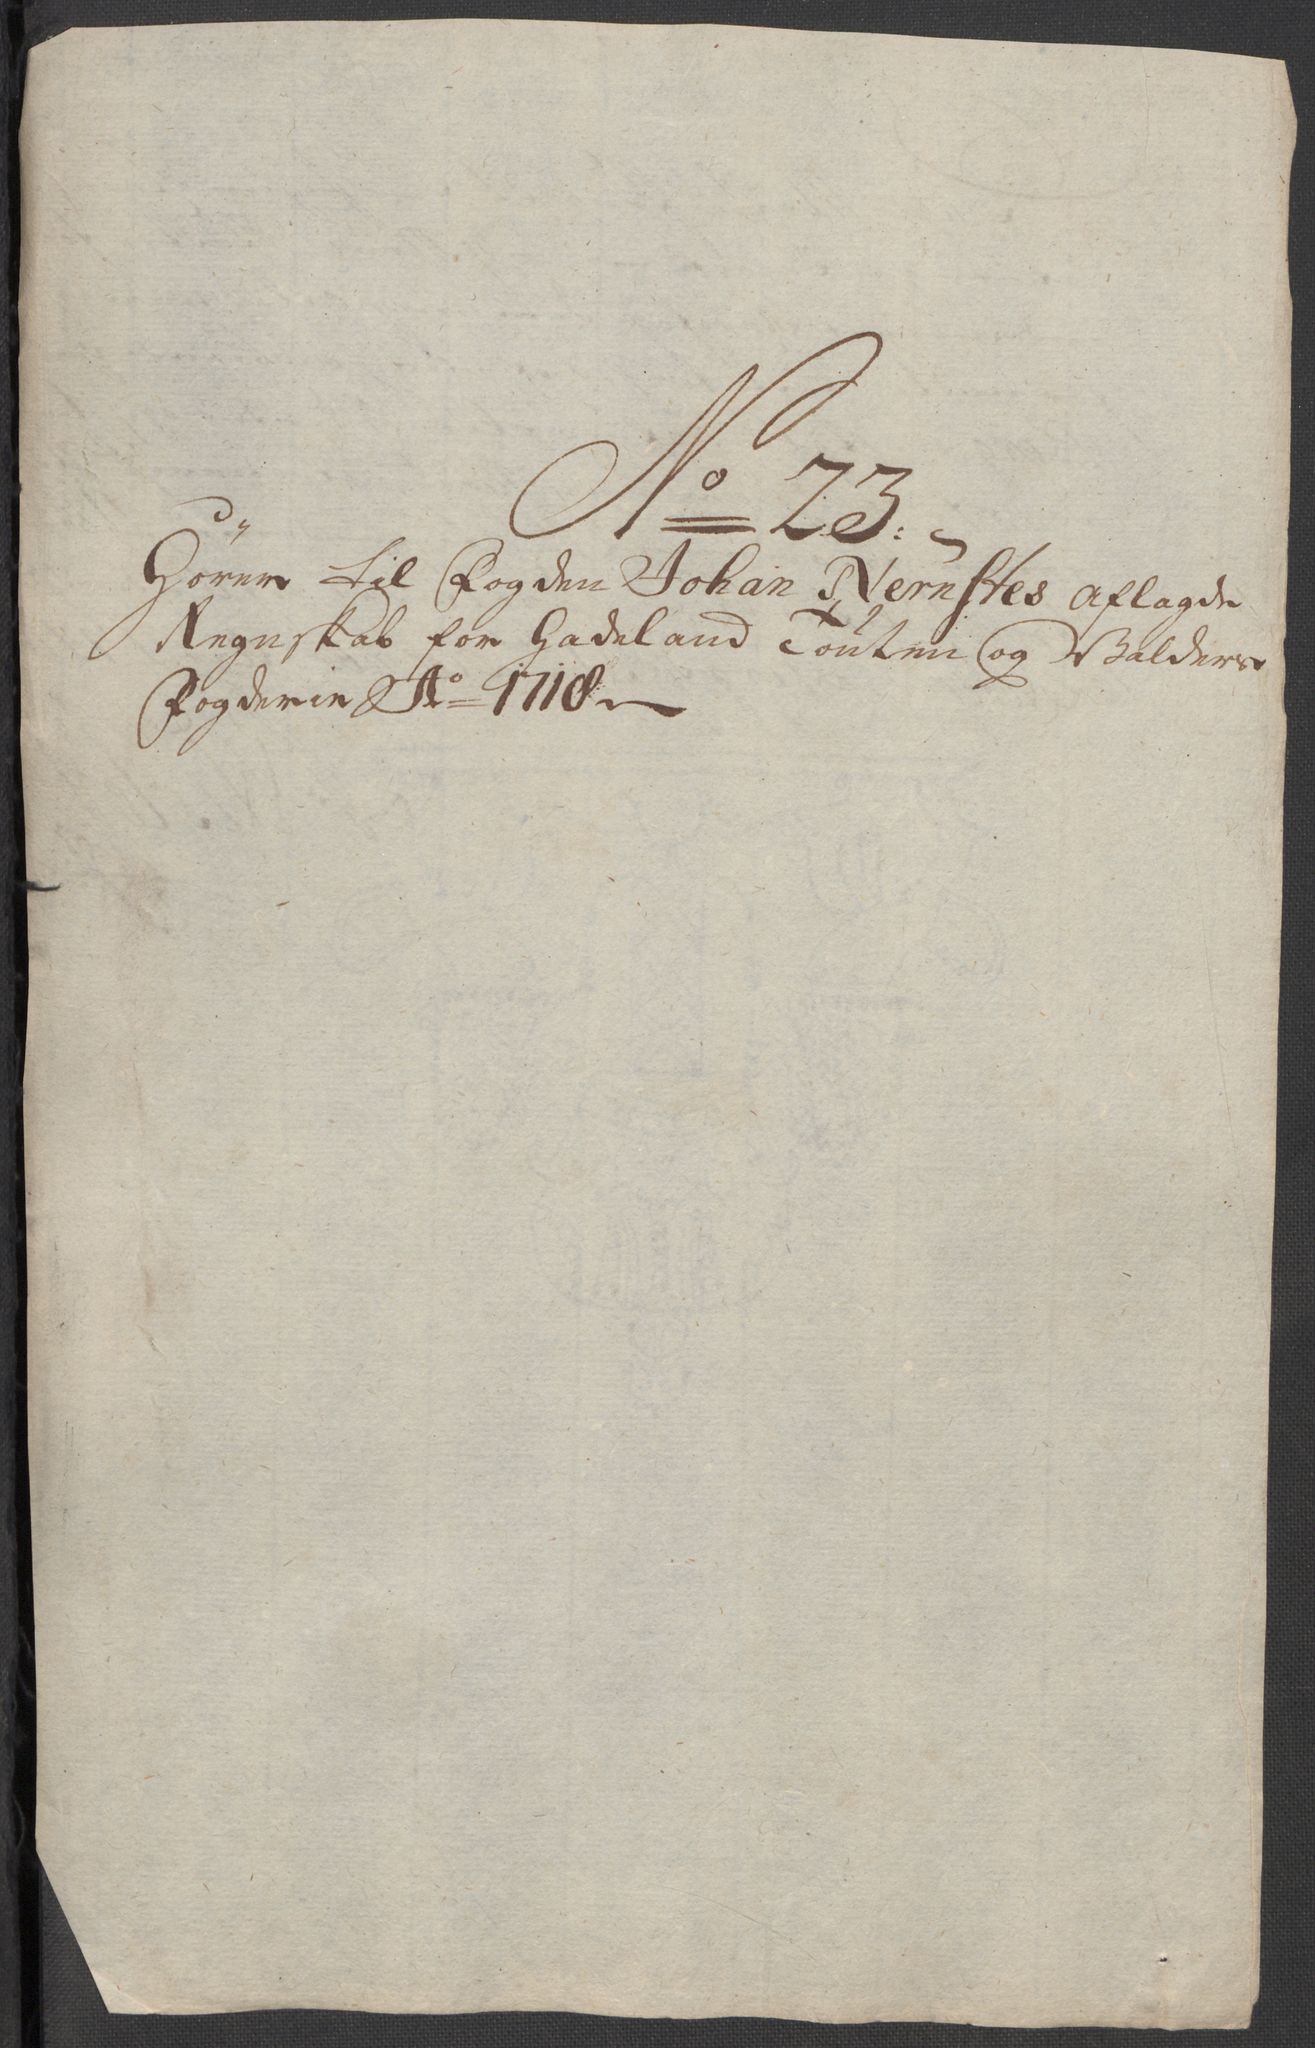 No 23.
Hörer til Fogden Johan Nernstes aflagde
Regnskab for Hadeland Touten og Walders
Fogderie Ao 1718